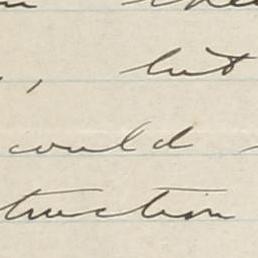 , but
would
truction